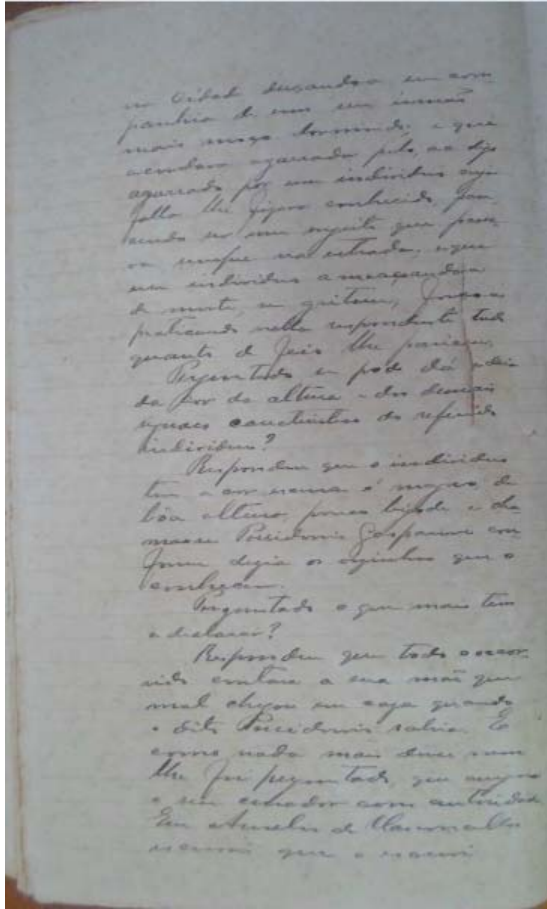 em companhia de um seu irmão
mais moço dormindo; e que
agarrada pelo, ou digo
agarrada por um individuo cuja
falla lhe ficara conhecida, pare-
cendo ser um sujeito que passa-
va sempre na estrada, e que
esse individuo ameaçando-a
de morte, se gritasse,
praticando nella respondente tudo
quanto de feio lhe pareceu.
Perguntado se pode dá ideia
da cor da altura e dos demais
signaes do referido
individuo?
Respondeu que o individuo
tem a cor escura é magro de
bôa altura, pouco bigode e cha-
ma-se Poscidonio Gasparino con-
forme dizia os visinhos que o
conheçam.
Perguntado o que mais tem
a declarar?
Respondeu que todo occor-
rido contara a sua mãe que
mal chegou em caza quando
o dito Poscidonio sahia. E
como nada mais disse nem
lhe foi perguntado,
o seu curador com autoridade
Eu Anselmo de Vasconcellos
escrivão que o escrevi